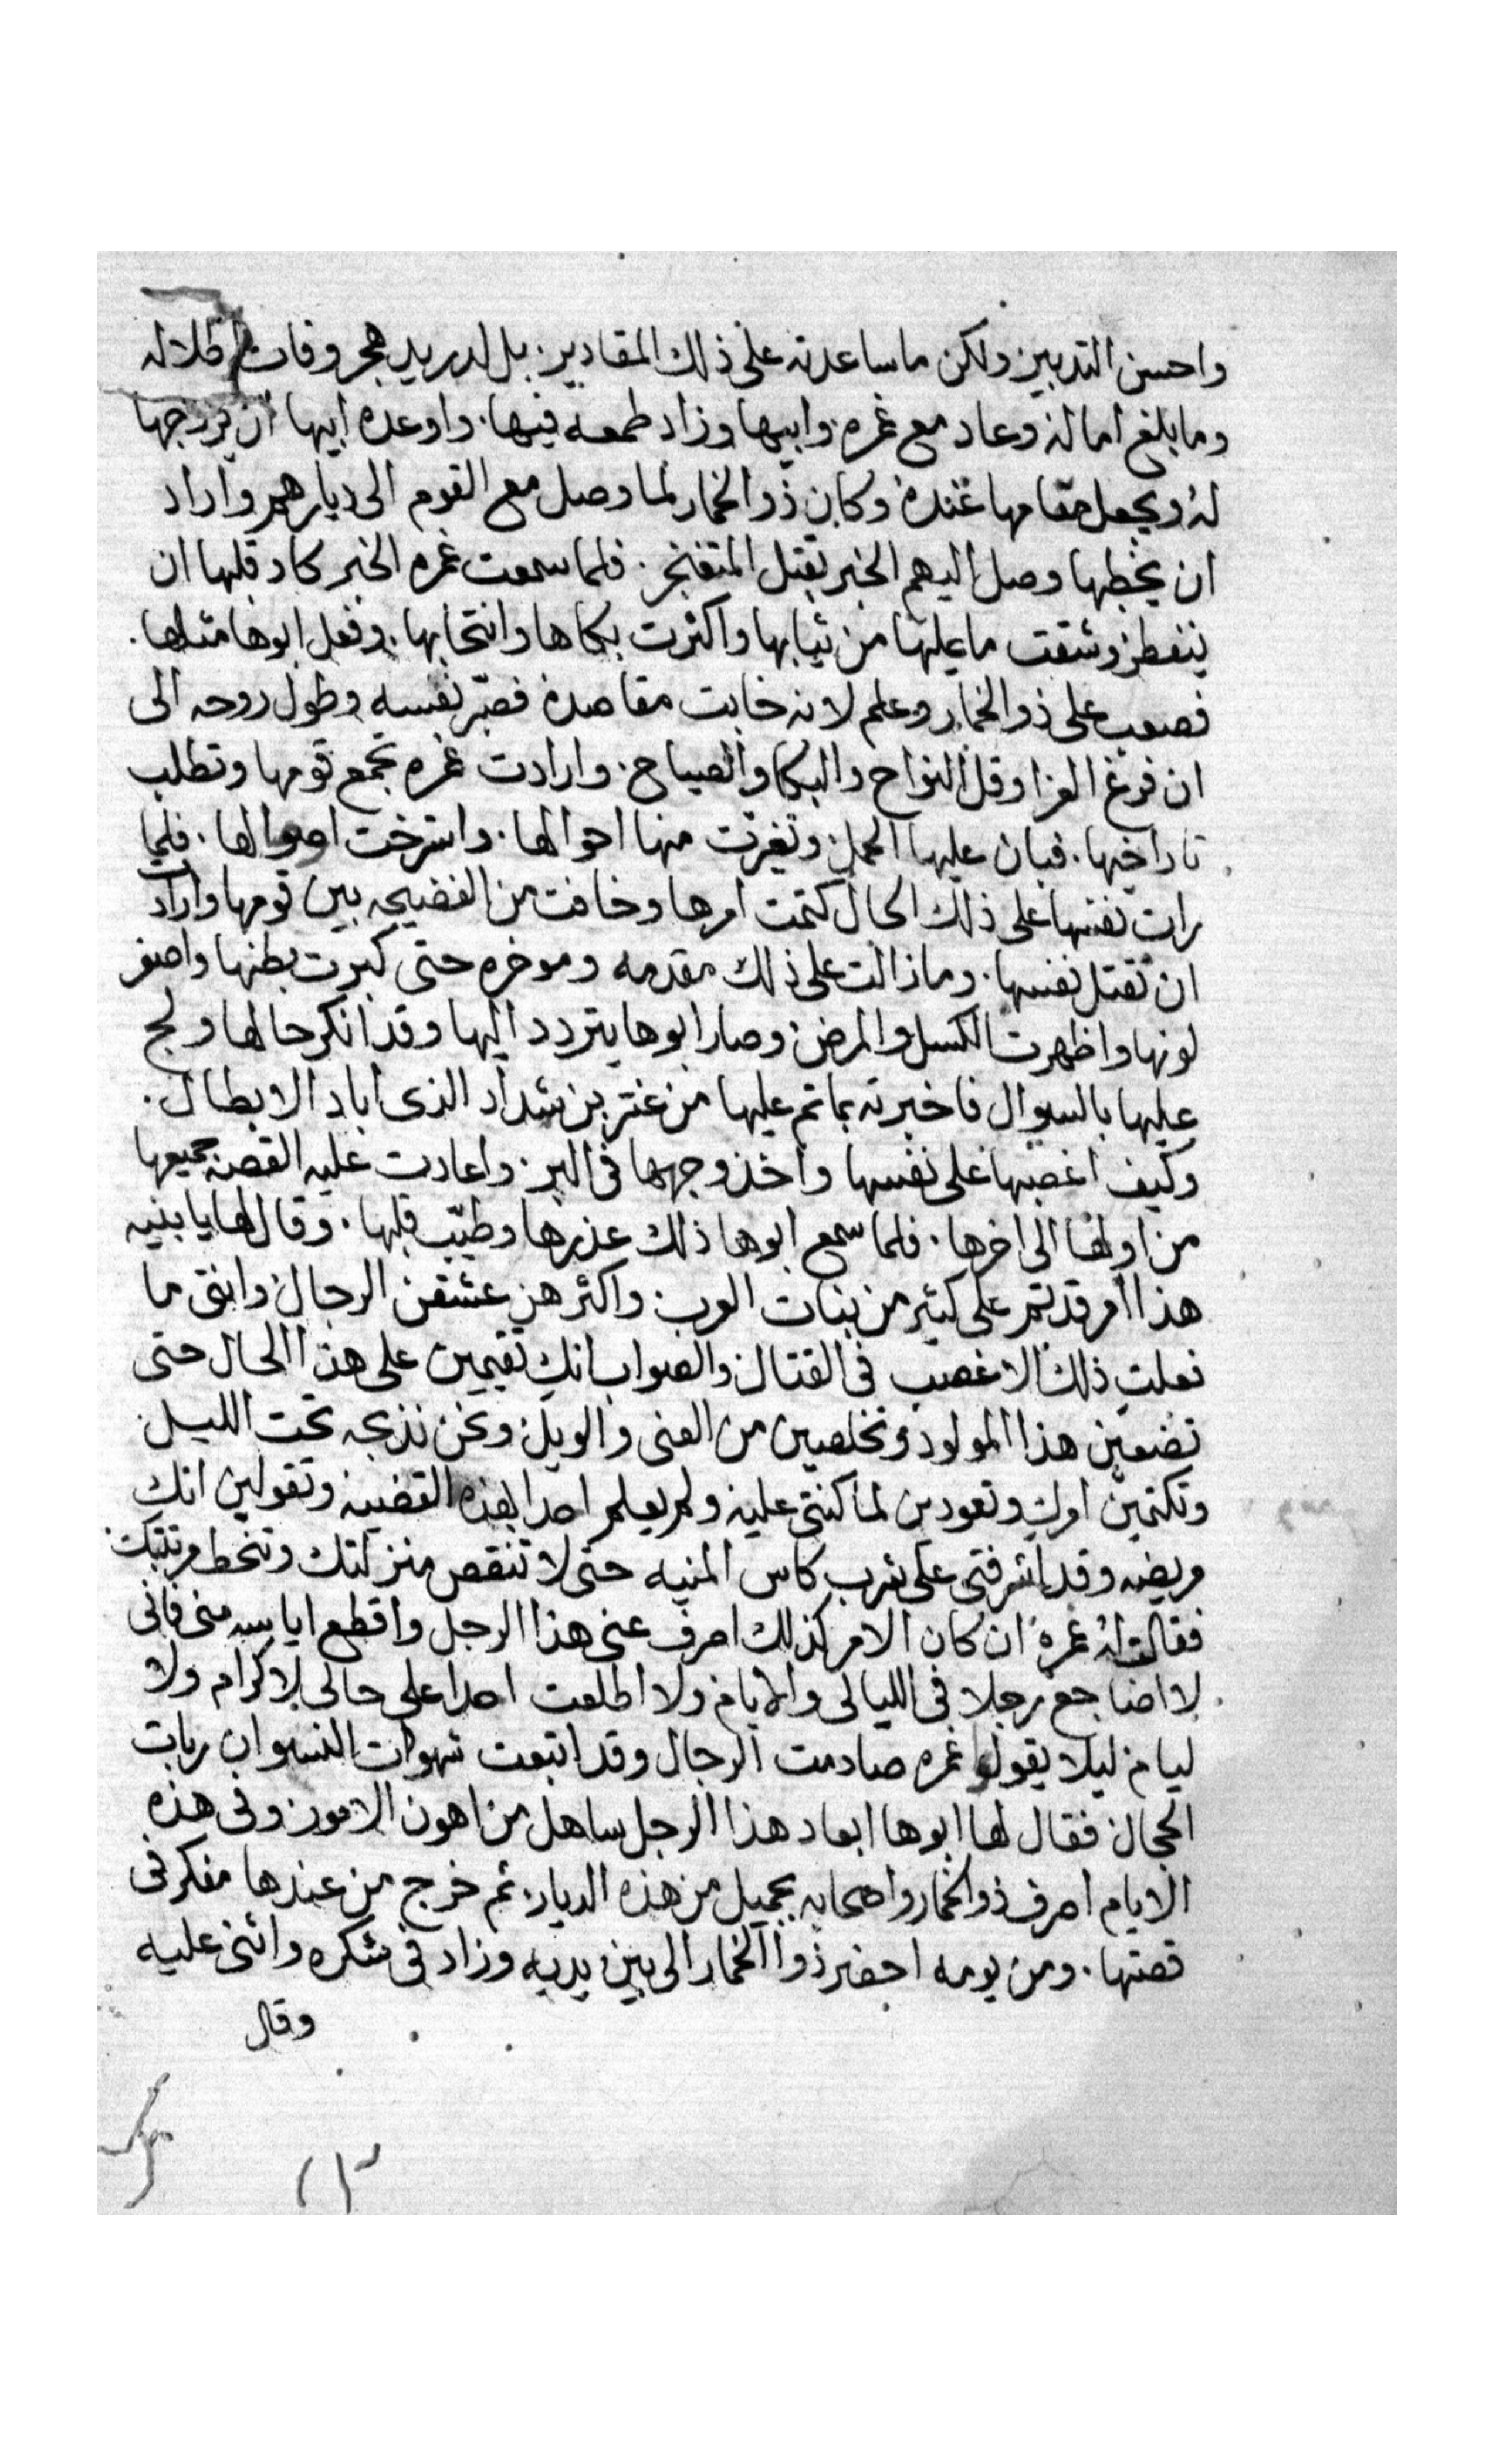 واحسن التدبير ولكن ما ساعدته على ذلك المقادير. بل لدريد هجر وفات اطلاله
وما بلغ اماله وعاد مع غمره وابيها وزاد طمعه فيها. واوعده ابيها ان يزوجها
له ويجعل مقامها عنده وكان ذو الخمار لما وصل مع القوم الى ديارهم واراد
ان يخطبها وصل اليهم الخبر بقتل المتفنجر. فلما سمعت غمره الخبر كاد قلبها ان
ينفطر وشقت ما عليها من ثيابها واكثرت بكاها وانتحابها. وفعل ابوها مثلها.
فصعب على ذو الخمار وعلم لانه خابت مقاصده فصبّر نفسه وطول روحه الى
ان فرغ العزا وقل النواح والبكا والصياح. وارادت غمره تجمع قومها وتطلب
تار اخيها. فبان عليها الحمل وتغيرت منها احوالها. واسترخت اصوالها. فلما
رات نفسها على ذلك الحال كتمت امرها وخافت من الفضيحه بين قومها واراد
ان تقتل نفسها. وما زالت على ذلك مقدمه وموخره حتى كبرت بطنها واصفر
لونها واظهرت الكسل والمرض وصار ابوها يتردد اليها وقد انكر حالها ولج
عليها بالسوال فاخبرته بما تم عليها من عنتر بن شداد الذى اباد الابطال.
وكيف اغصبها على نفسها واخذ وجهها فى البر. واعادت عليه القصه جميعها
من اولها الى اخرها. فلما سمع ابوها ذلك عذرها وطيّب قلبها. وقال لها يا بنيه
هذا امر قد تم على كثير من بنات العرب واكثرهن عشقن الرجال وانتى ما
فعلتِ ذلك الا غصب فى القتال والصواب انكِ تقيمين على هذا الحال حتى
تضعين هذا المولود وتخلصين من العنى والويل ونحن نذبحه تحت الليل
وتكتمين امركِ وتعودين لما كنتى عليه ولم يعلم احدا بهذه القضيه وتقولين انك
مريضه وقد اشرفتى على شرب كاس المنيه حتى لا تنقص منزلتك وتنحط مرتبتك
فقالت له غمره ان كان الامر كذلك اصرف عنى هذا الرجل واقطع اياسه منى فانى
لا اضاجع رجلا فى الليالى والايام ولا اطلعت احدا على حالى لا كرام ولا
ليام ليلا يقولوا غمره صادمت الرجال وقد اتبعت شهوات النسوان ربات
الحجال فقال لها ابوها ابعاد هذا الرجل ساهل من اهون الامور وفى هذه
الايام اصرف ذو الخمار واصحابه بجميل من هذه الديار. ثم خرج من عندها مفكر فى
قصتها. ومن يومه احضر ذوا الخمار الى بين يديه وزاد فى شكره واثنى عليه
وقال